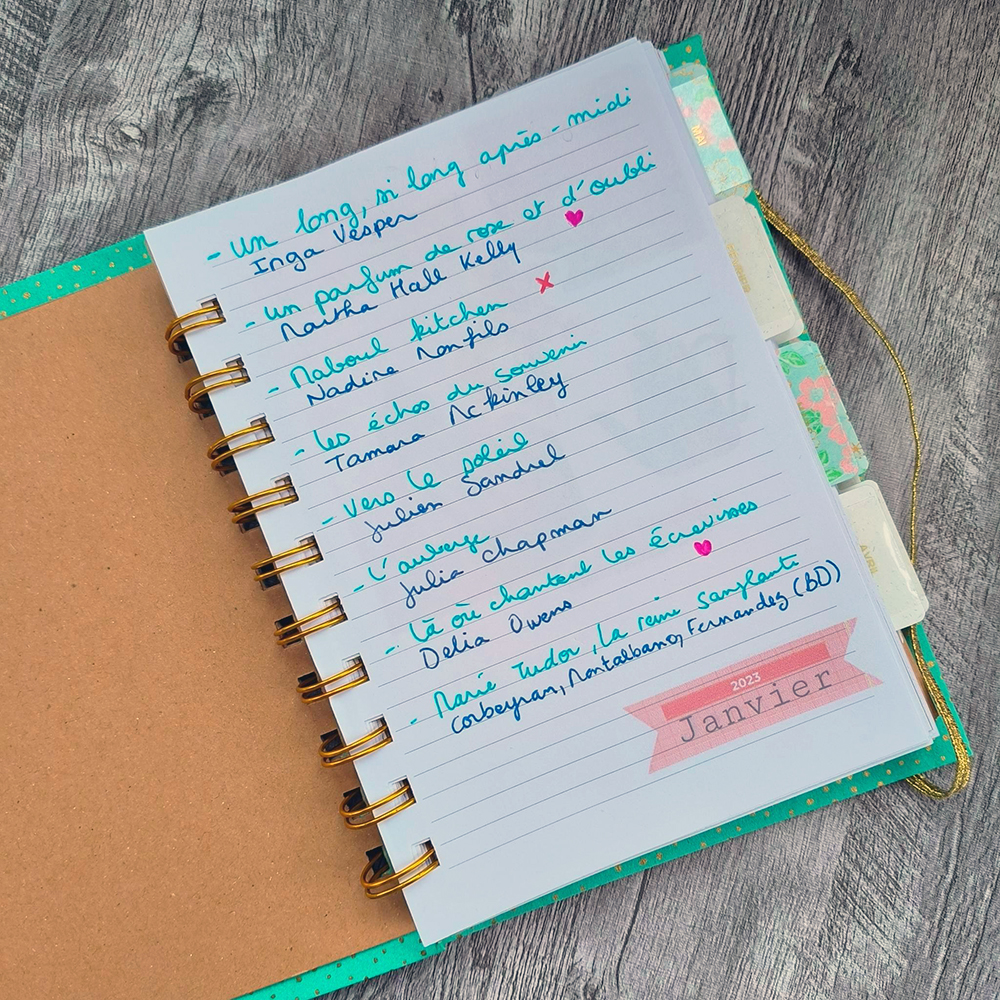 - Un long, si long après-midi
Inga Vesper
- Un parfum de rose et d'oubli
Martha Hall Kelly
- Maboul kitchen
Nadine Monfils
- Les échos du souvenir
Tamara McKinley
- Vers le soleil
Julien Sandrel
- L'auberge
Julia Chapman
- Là où chantent les écrevisses
Delia Owens
- Marie Tudor, La reine sanglante
Corbeyran, Montalbano, Fernandez (BD)
2023
Janvier
MAI
AVRIL